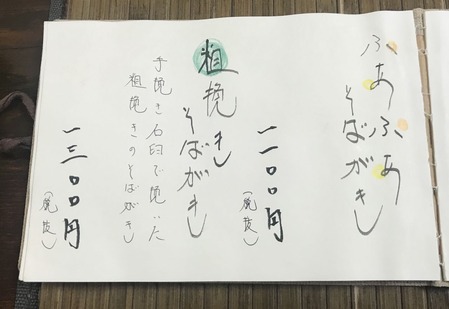 ふあふあ
そばがき
一一〇〇円
（税抜）
粗挽き
そばがき
手挽き石臼で挽いた
粗挽きのそばがき
一三〇〇円
（税抜）